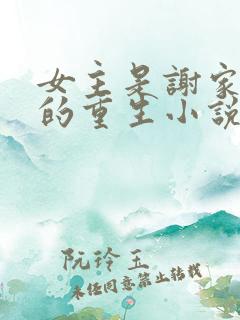 女主是謝家
的重生小說
阮玲玉
未任同意禁止转载